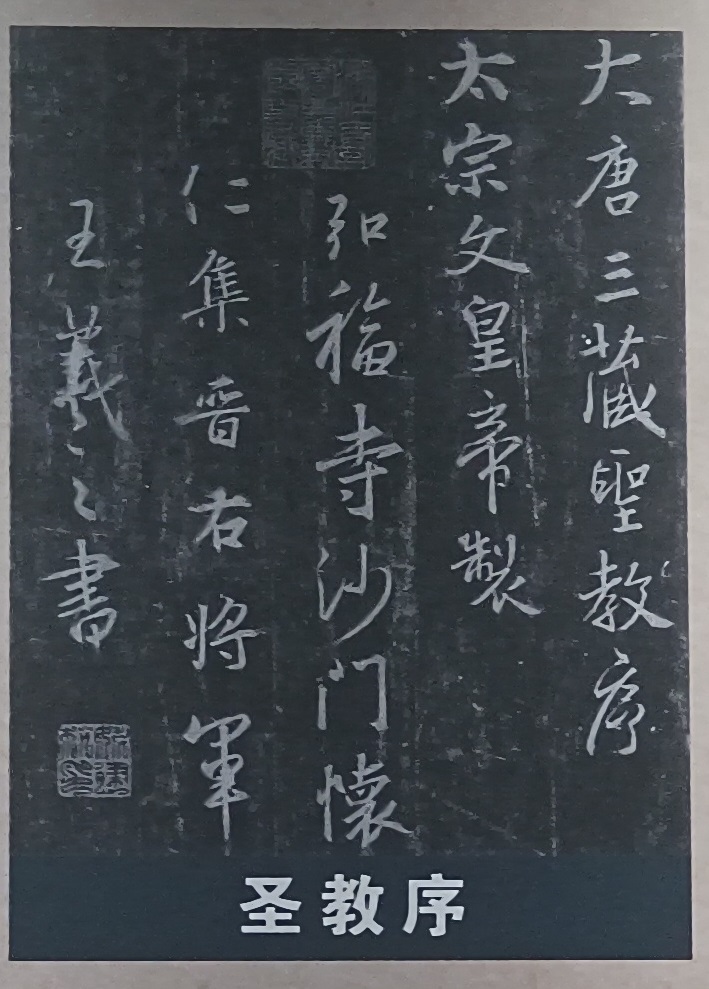 大唐三藏聖教序
太宗文皇帝製
弘福寺沙門懷
仁集晉右將軍
王羲之書
圣教序